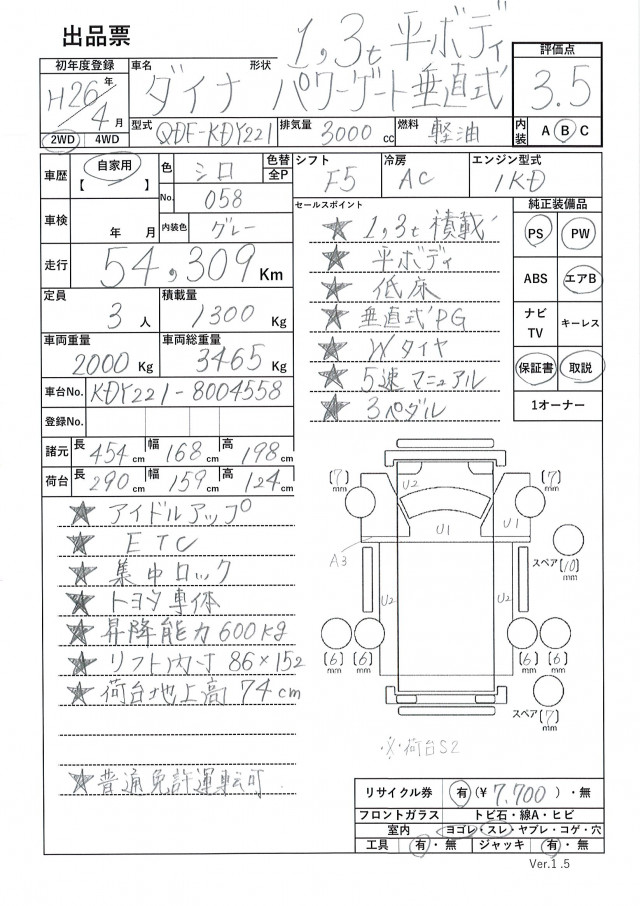 出品票
1,3t 平ボディ
パワーゲート 垂直式
初年度登録
H26年 4月
2WD 4WD
車名 ダイナ 形状
型式 QDF-KDY221
排気量 3000 cc
燃料 軽油
評価点
3.5
内装 A B C
車歴 自家用
【 】
色 シロ
色替 全P
No. 058
シフト F5
冷房 AC
エンジン型式 1KD
車検 年 月
内装色 グレー
走行 54,309 Km
定員 3 人
積載量 1300 Kg
車両重量 2000 Kg
車両総重量 3465 Kg
車台No. KDY221-8004558
登録No.
諸元 長 454 cm 幅 168 cm 高 198 cm
荷台 長 290 cm 幅 159 cm 高 124 cm
セールスポイント
★ 1,3t 積載
★ 平ボディ
★ 低床
★ 垂直式PG
★ Wタイヤ
★ 5速マニュアル
★ 3ペダル
純正装備品
PS PW
ABS エアB
ナビ TV キーレス
保証書 取説
1オーナー
★ アイドルアップ
★ ETC
★ 集中ロック
★ トヨタ車体
★ 昇降能力600kg
★ リフト内寸 86×152
★ 荷台地上高 74cm
★ 普通免許運転可
[7] mm
[7] mm
U2
U1
U1
A3
スペア [10] mm
U2
U2
[6] mm [6] mm
[6] mm [6] mm
スペア [7] mm
※荷台S2
リサイクル券 有 (¥ 7,700 )・無
フロントガラス トビ石・線A・ヒビ
室内 ヨゴレ・スレ・ヤブレ・コゲ・穴
工具 有・無 ジャッキ 有・無
Ver.1.5